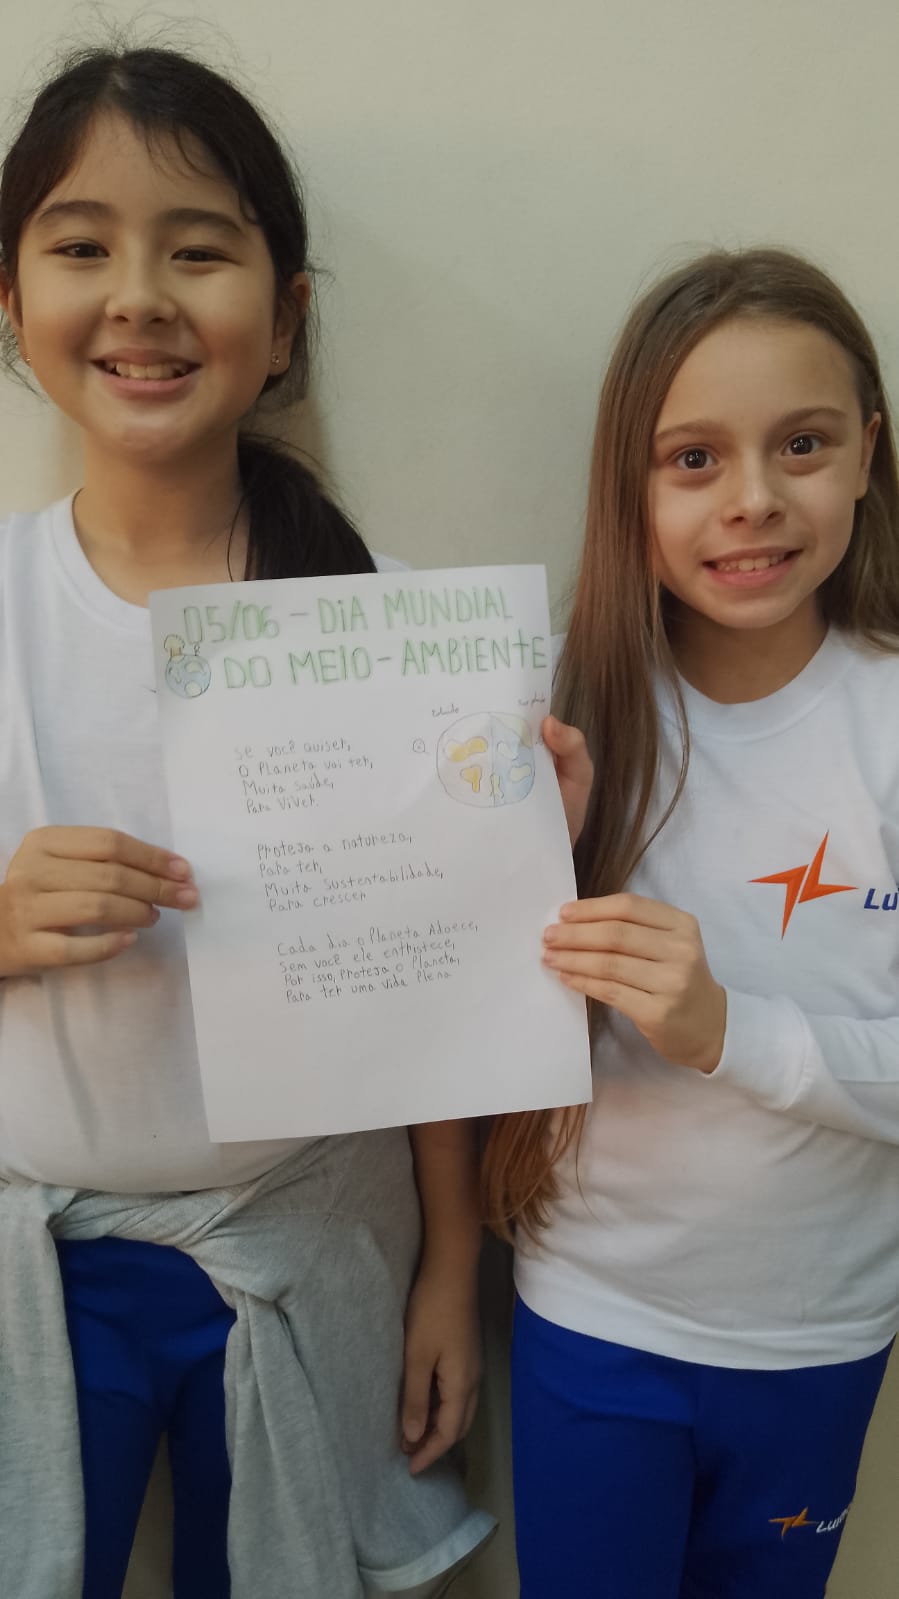 05/06 - DiA MUNDiAL
DO MEIO-AMBiENTE
Poluido
Se você quiser,
O Planeta vai ter,
Muita saúde,
Para Viver.
Proteja a natureza,
Para ter,
Muita sustentabilidade,
Para crescer
Cada dia o Planeta Adoece,
Sem você ele entristece,
Por isso, proteja o Planeta,
Para ter uma vida Plena